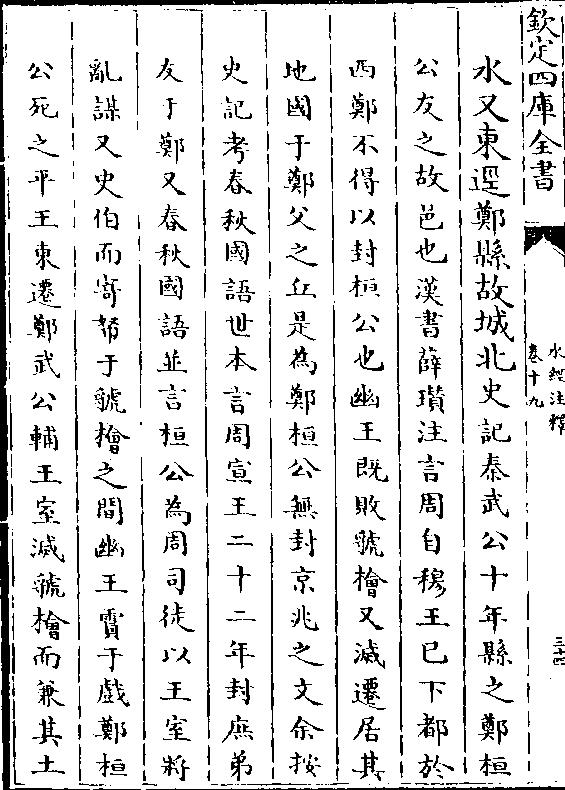 欽定四庫全書
水經注釋
卷十九
三十四
水又東逕鄭縣故城北史記秦武公十年縣之鄭桓
公友之故邑也漢書薛瓚注言周自穆王已下都於
西鄭不得以封桓公也幽王既敗虢檜又滅遷居其
地國于鄭父之丘是為鄭桓公無封京兆之文余按
史記考春秋國語世本言周宣王二十二年封庶弟
友于鄭又春秋國語並言桓公為周司徒以王室將
亂謀又史伯而寄帑于虢檜之間幽王霣于戲鄭桓
公死之平王東遷鄭武公輔王室滅虢檜而兼其土